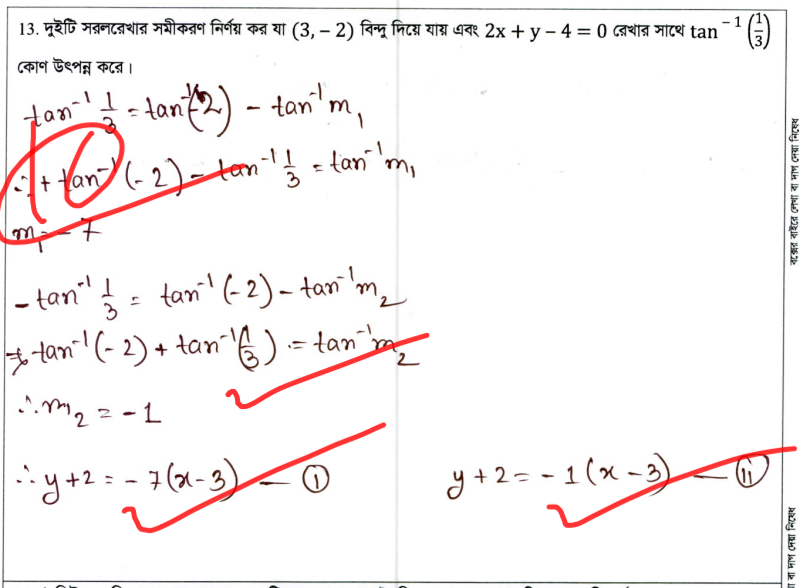 13. দুইটি সরলরেখার সমীকরণ নির্ণয় কর যা (3, – 2) বিন্দু দিয়ে যায় এবং 2x + y – 4 = 0 রেখার সাথে tan⁻¹ (1/3)
কোণ উৎপন্ন করে।
tan⁻¹ 1/3 = tan⁻¹(-2) - tan⁻¹ m₁
∴ + tan⁻¹ (-2) - tan⁻¹ 1/3 = tan⁻¹ m₁
10
m₁ = -7
- tan⁻¹ 1/3 = tan⁻¹ (-2) - tan⁻¹ m₂
⇒ tan⁻¹ (-2) + tan⁻¹ (1/3) = tan⁻¹ m₂
∴ m₂ = -1
∴ y+2 = -7(x-3) — (i) y+2 = -1(x-3) — (ii)
বক্সের বাইরে লেখা বা দাগ দেয়া নিষেধ
বা দাগ দেয়া নিষেধ